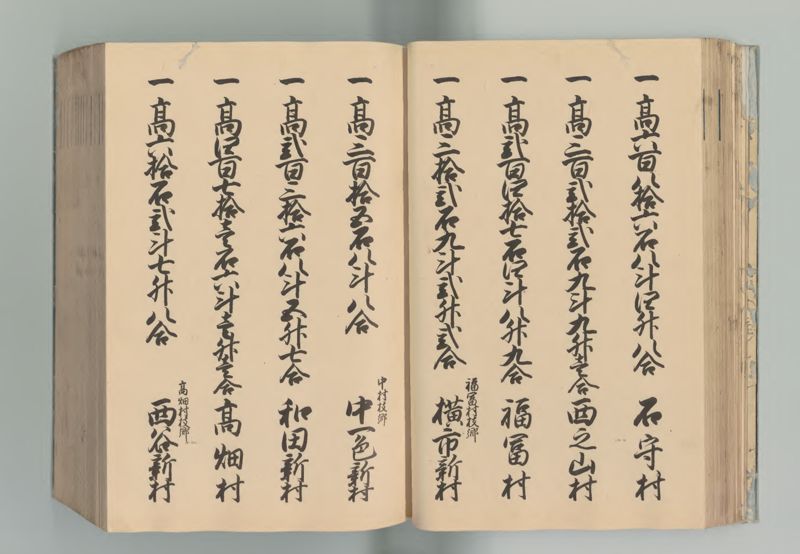 一 髙六百八拾六石八斗四升八合 石守村
一 髙三百弐拾弐石九斗九升壱合 西之山村
一 髙弐百四拾七石四斗八升九合 福冨村
一 髙三拾弐石九斗弐升弐合 福冨村枝郷 横市新村
一 髙三百拾五石八斗八合 中村枝郷 中一色新村
一 髙弐百三拾六石八斗五升七合 和田新村
一 髙四百七拾壱石六斗壱升壱合 髙畑村
一 髙六拾石弐斗七升八合 髙畑村枝郷 西谷新村